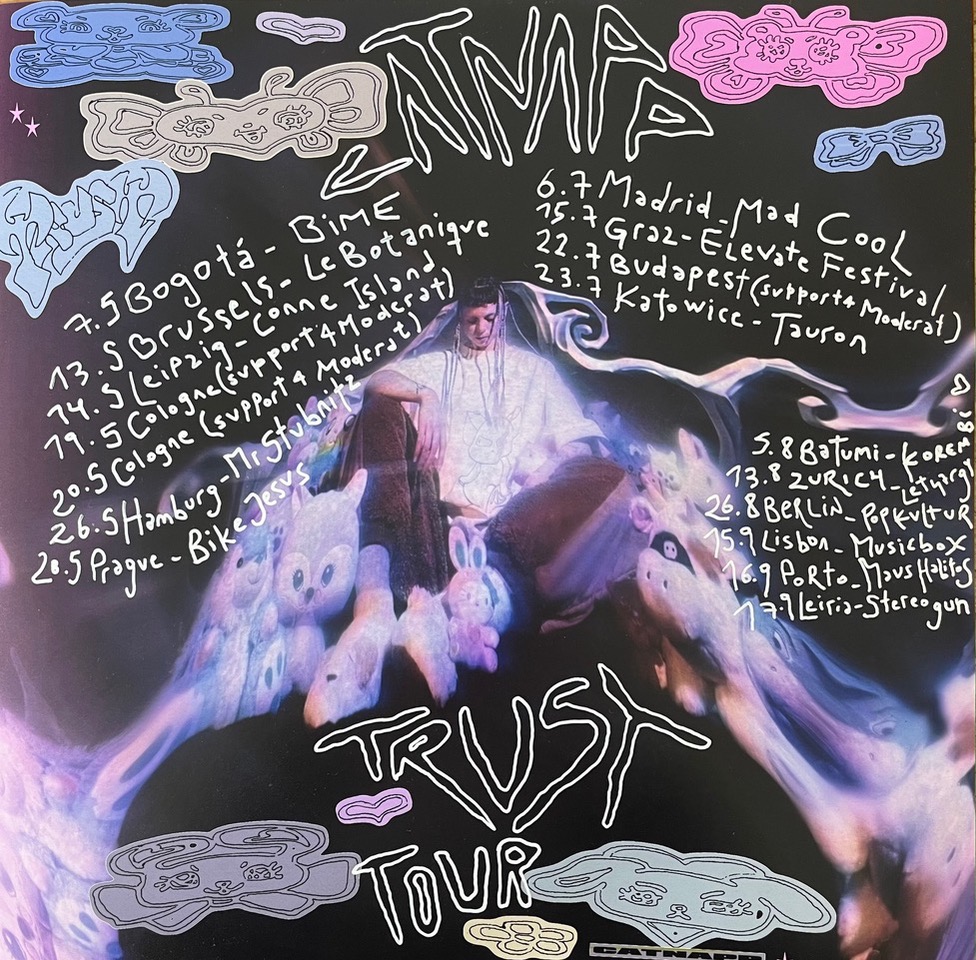 CATNAPP
TRUST
7.5 Bogotá - BIME
13.5 Brussels - Le Botanique
14.5 Leipzig - Conne Island
19.5 Cologne (support 4 Moderat)
20.5 Cologne (support 4 Moderat)
26.5 Hamburg - Mr Stubnitz
20.5 Prague - Bike Jesus
6.7 Madrid - Mad Cool
15.7 Graz - Elevate Festival
22.7 Budapest (support 4 Moderat)
23.7 Katowice - Tauron
5.8 Batumi - KOREMBI
13.8 ZURICH - Lethargy
26.8 BERLIN - POPKULTUR
15.9 Lisbon - Musicbox
16.9 PoRto - Maus Habitos
17.9 Leiria - Stereogun
TRUST
TOUR
CATNAPP